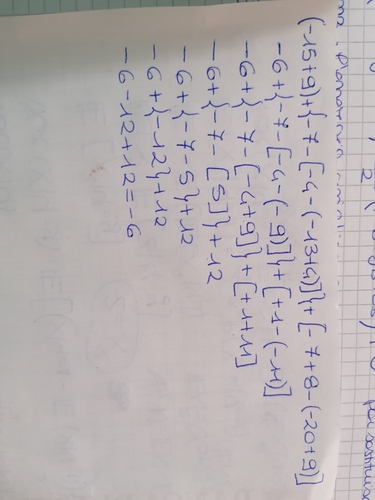 (-15+9)+{-7-[-4-(-13+4)]}+[-7+8-(-20+9)]
-6+{-7-[-4-(-9)]}+[+1-(-11)]
-6+{-7-[-4+9]}+[+1+11]
-6+{-7-[5]}+12
-6+{-7-5}+12
-6+{-12}+12
-6-12+12=-6